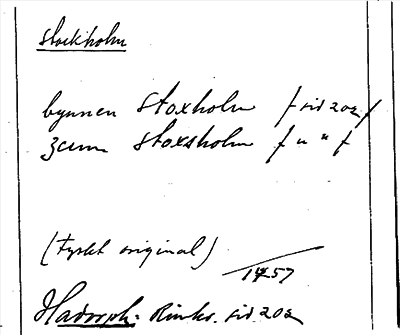 Stockholm
bynnen Stoxholm / sid 202 /
zcum Stoxsholm / " " /
(tyskt original)
1457
Hadorph: Rimkr. sid 202